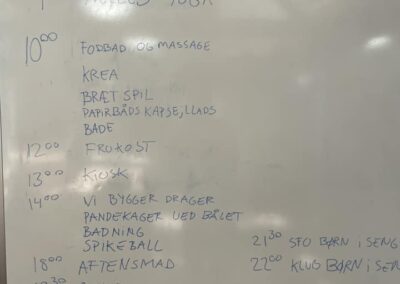 YOGA
10⁰⁰ FODBAD OG MASSAGE
KREA
BRÆT SPIL
PAPIRBÅDS KAPSEJLLADS
BADE
12⁰⁰ FROKOST
13⁰⁰ KIOSK
14⁰⁰ VI BYGGER DRAGER
PANDEKAGER VED BÅLET
BADNING
SPIKEBALL
21³⁰ SFO BØRN i SENG
18⁰⁰ AFTENSMAD
22⁰⁰ KLUB BØRN i SEN